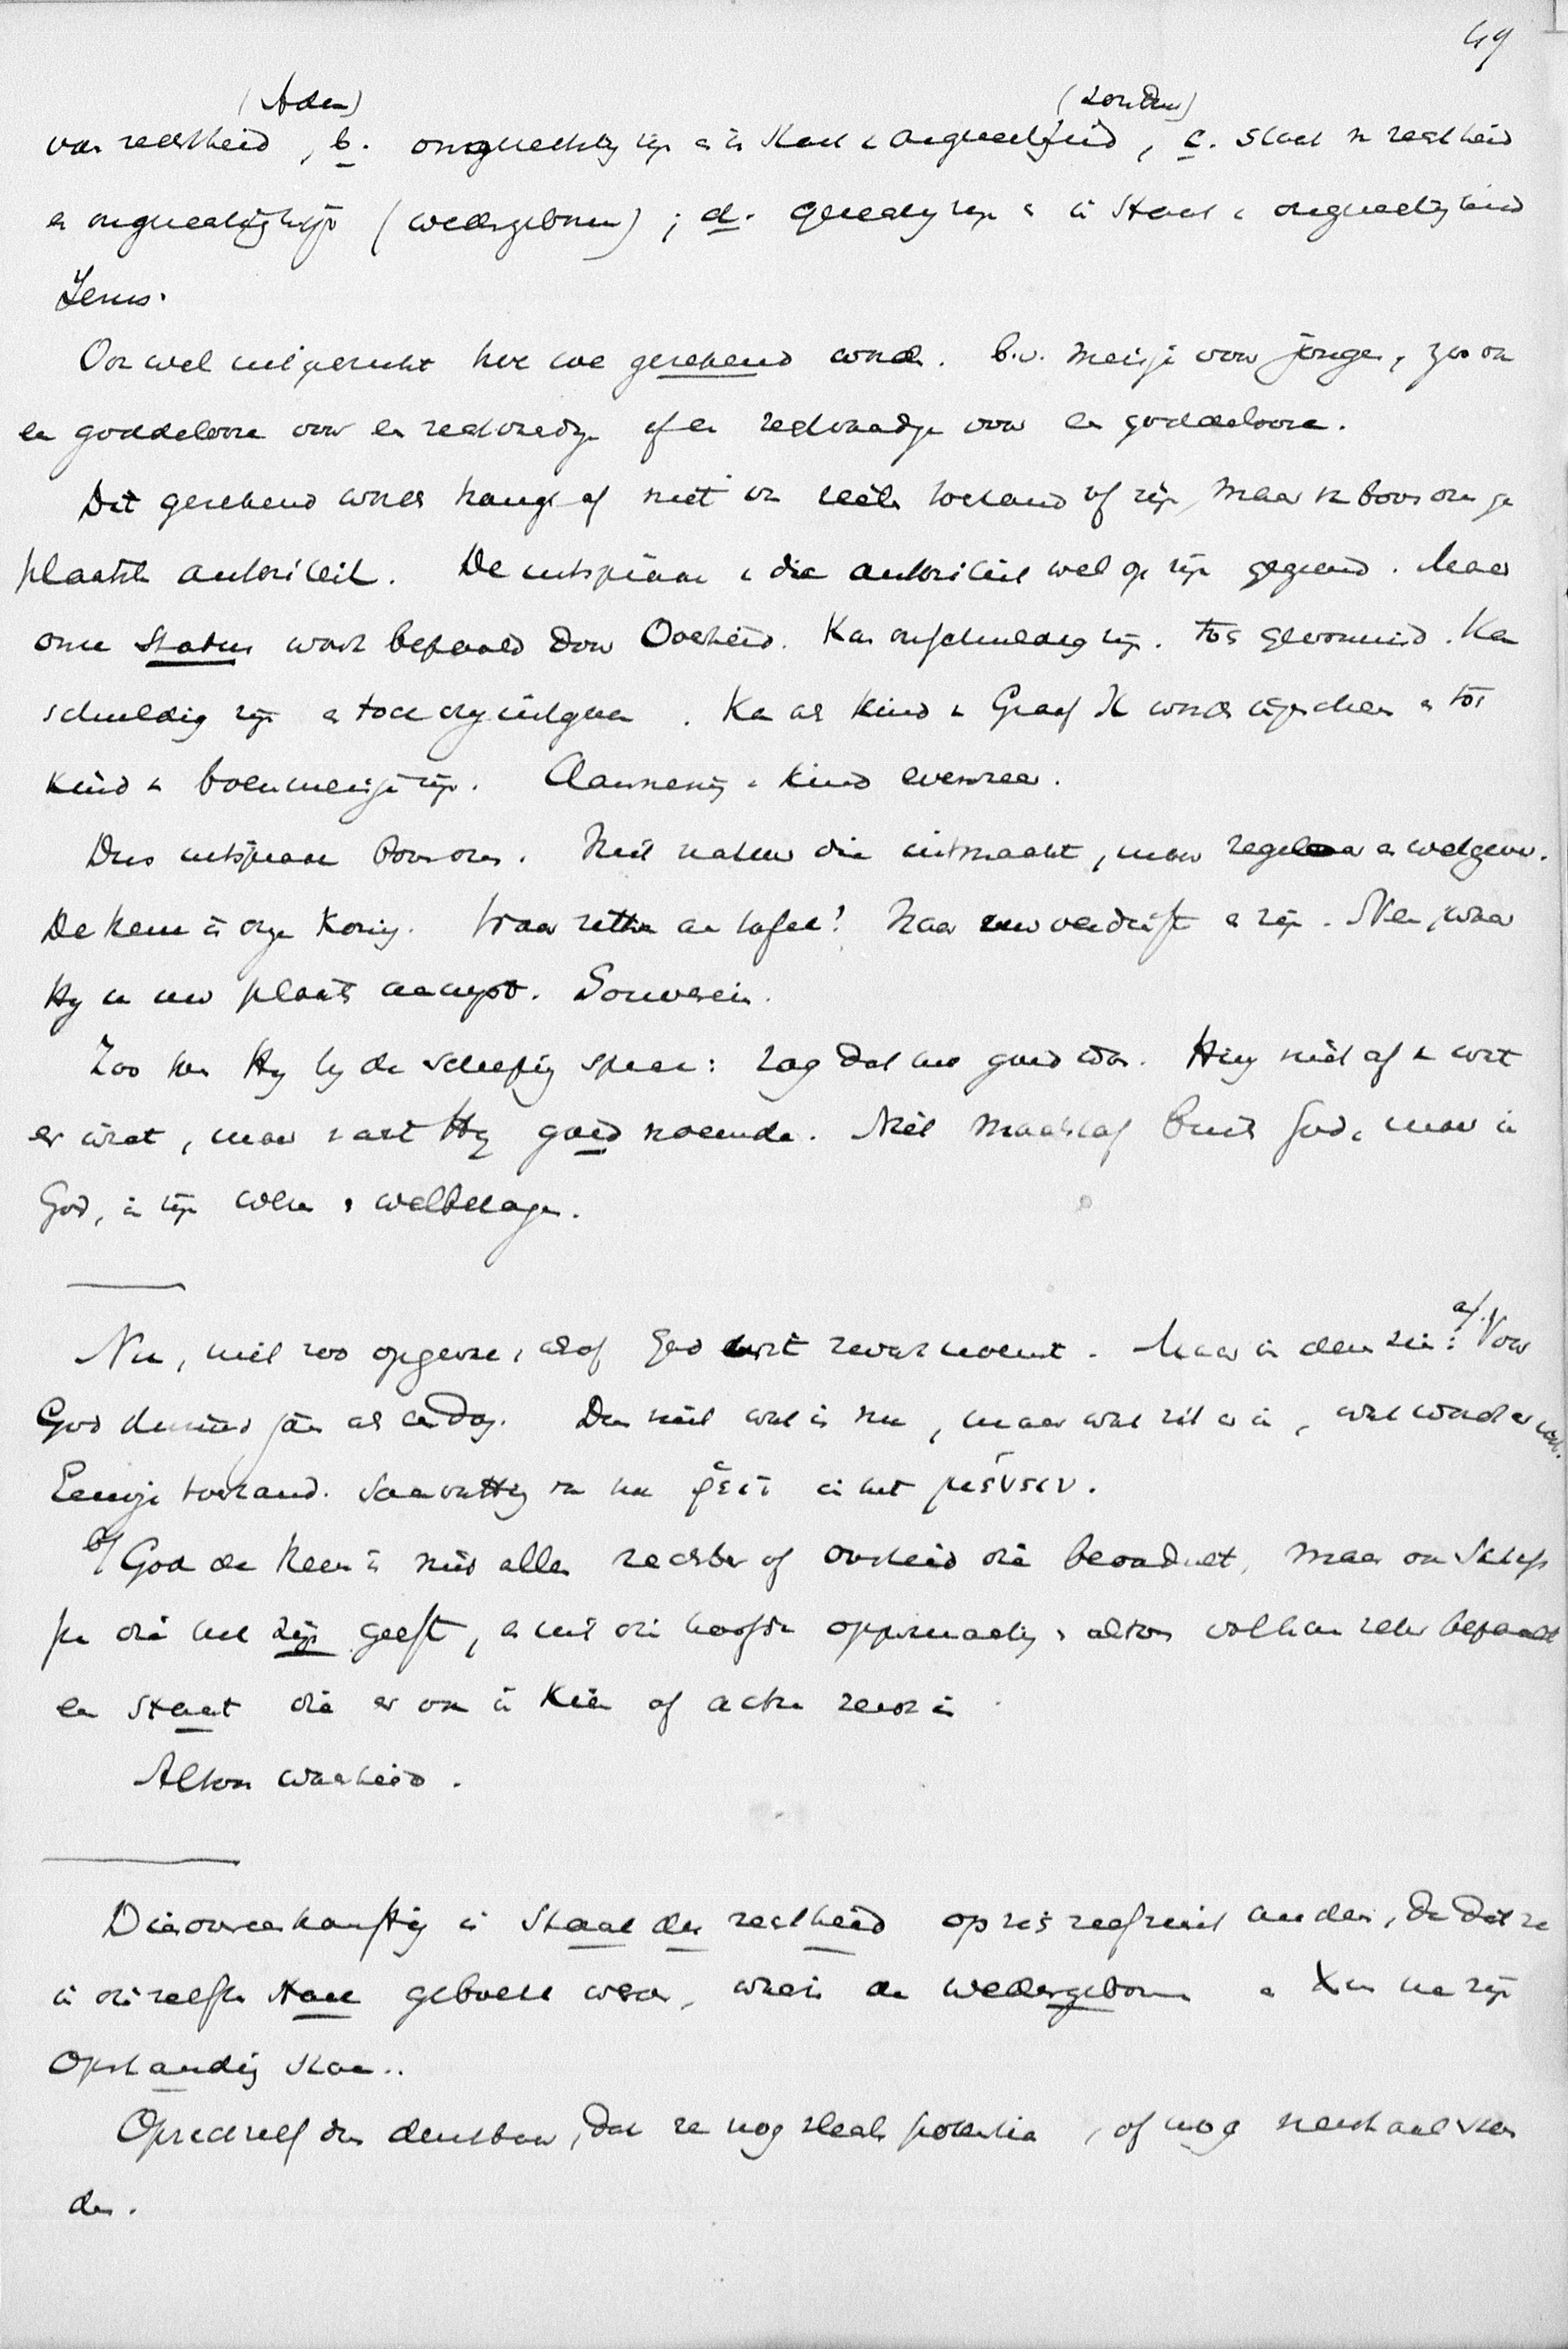 49
(Adam) (Zondaar)
van rechtheid, b. ongerechtig zijn en in staat v ongerechtigheid, c. staat v rechtheid
en ongerechtig zijn (wedergeboren); d. gerechtig zijn en in staat v ongerechtigheid
Jezus.
Ook wel uitgedrukt hoe we gerekend worden. b.v. meisje voor jongen, zoo ook
een goddelooze voor een rechtvaardige of een rechtvaardige voor een goddelooze.
Dit gerekend worden hangt af niet van toestand of zijn, maar v boven ons ge
plaatste autoriteit. De uitspraak v die autoriteit wel op zijn gegrond. Maar
onze Status wordt bepaald door Overheid. Kan onschuldig zijn. toch gevonnisd. Kan
schuldig zijn en toch vrij uitgaan. Kan als kind v Graaf X worden ingeschreven en toch
kind v boerenmeisje zijn. Aanneming v kind evenzeer.
Dus uitspraak boven ons. Niet natuur die uitmaakt, maar regelaar en wetgever.
De Heer is onze Koning. Waar zitten aan tafel? Naar uw verdienste en zijn. Neen, waar
Hij u uw plaats aanwijst. Souverein.
Zoo kon Hij bij de schepping spreken: zag dat het goed was. Hing niet af v wat
er was, maar v wat Hij goed noemde. Niet maatstaf buiten God, maar in
God, in zijn wezen en welbehagen.
Nu, niet zoo opgevat, alsof God wit zwart noemt. Maar in dezen zin: a/ Voor
God duizend jaar als een dag. Dus niet wat is nu, maar wat zit er in, wat wordt er van.
Eeuwige toestand.
b/ God de Heer is niet alleen rechter of overheid die beoordeelt, maar ook Schep
per die het zijn geeft, en uit die hoofde oppermachtig en alzoo volkomen zeker bepaalt
een staat die er ook in kiem of achter zeker is.
Alzoo waarheid.
Dienovereenkomstig is Staat der rechtheid op zich zelf niet anders, dan dat ze
in diezelfde staat geboren waren, waarin de wedergeboren en X na zijn
Opstanding staan..
Op zich zelf dus denkbaar, dat ze nog slechts potentia, of nog
den.